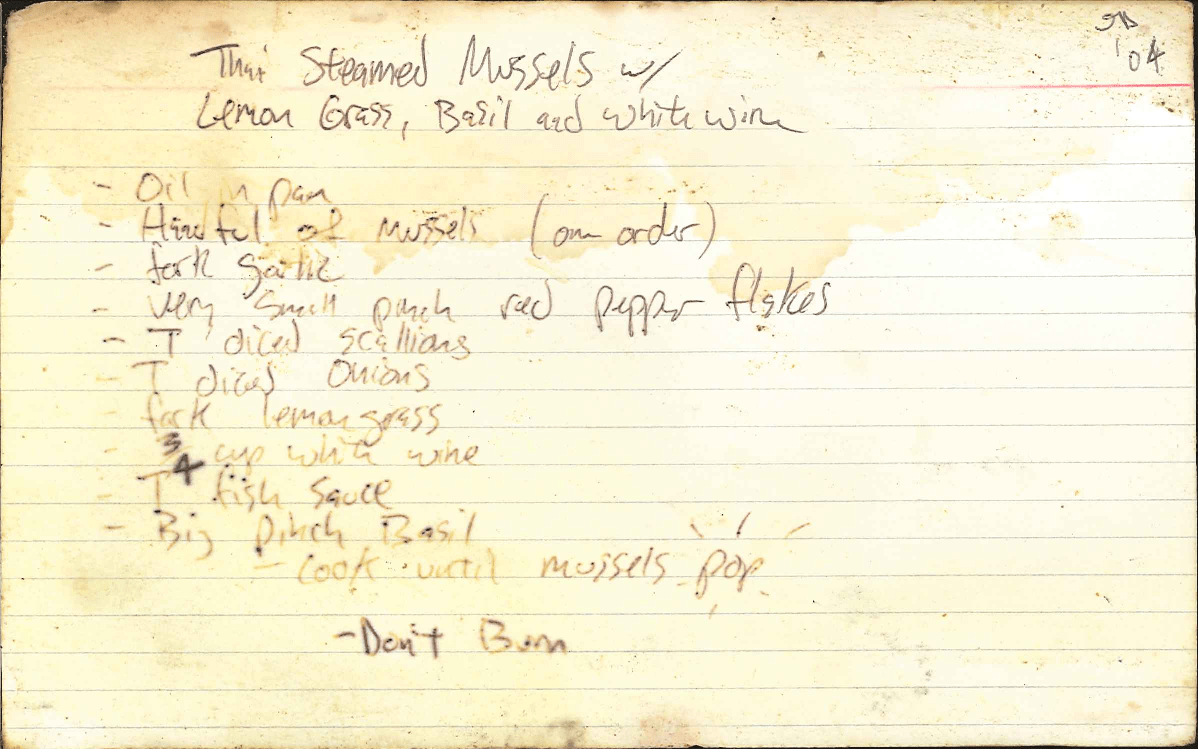 JD
'04
Thai Steamed Mussels w/
Lemon Grass, Basil and white wine
- Oil in pan
- Handful of mussels (one order)
- fork garlic
- very small pinch red pepper flakes
- T diced scallions
- T diced Onions
- fork lemongrass
- 3/4 cup white wine
- T fish sauce
- Big pinch Basil
- Cook until mussels pop
- Don't Burn